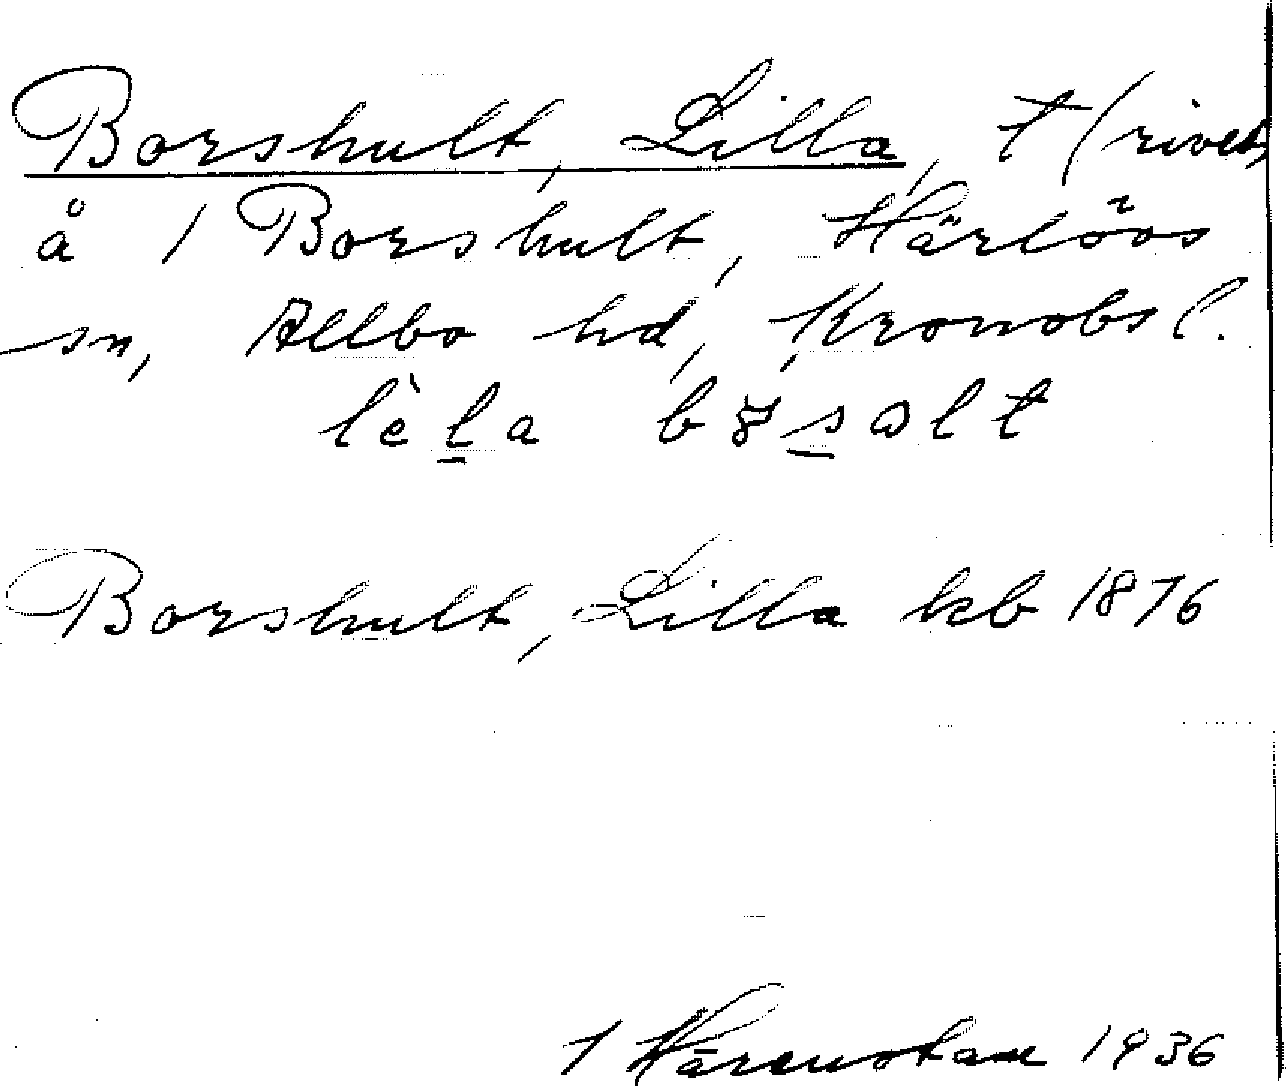 Borshult, Lilla, t (rivet)
å 1 Borshult, Härlövs
sn, Allbo hd, Kronobs l.
lèla bøsalt
Borshult, Lilla kb 1876
1936